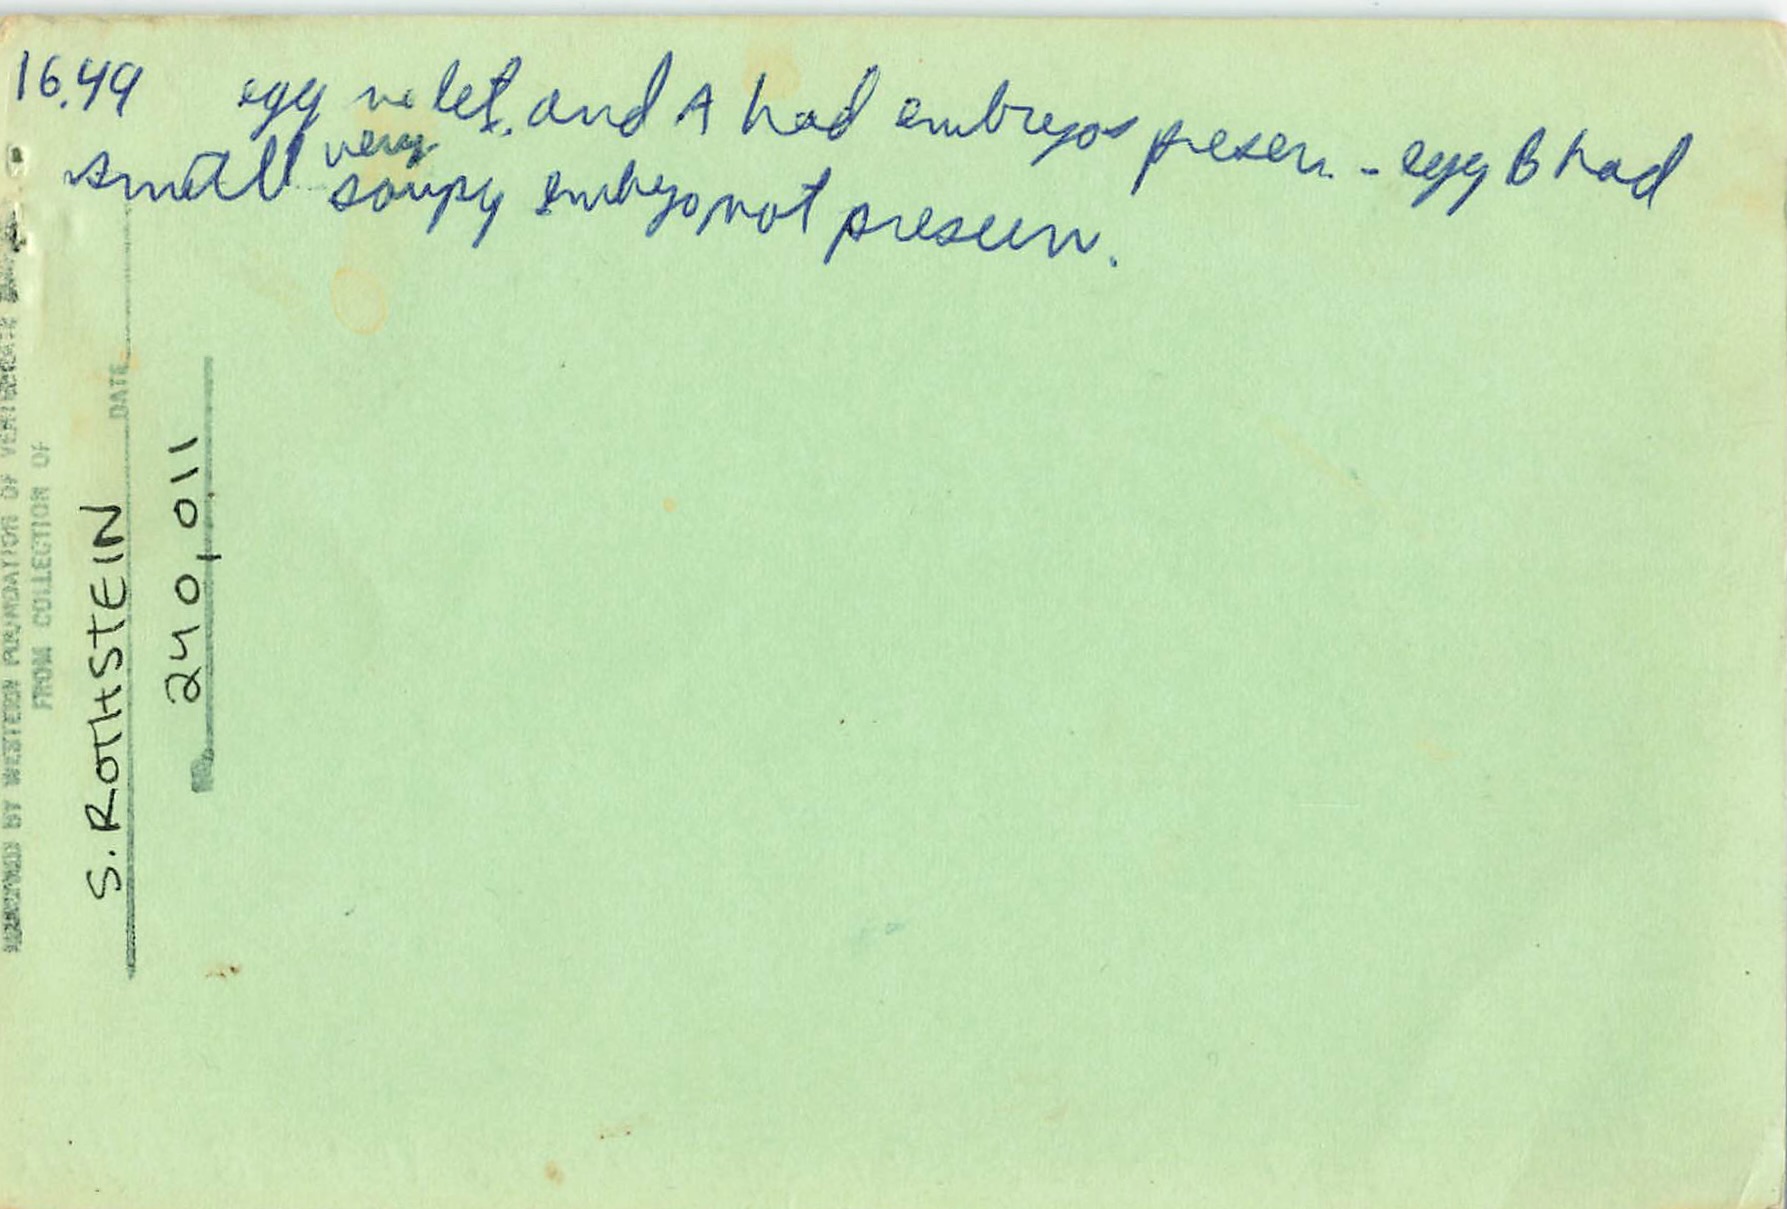 16.49 egg no let. and A had embryos presen. - egg B had
small very soupy embryo, not preseen.
RECEIVED BY WESTERN FOUNDATION OF VERTEBRATE
FROM COLLECTION OF
S. ROTHSTEIN
DATE
NO. 240,011